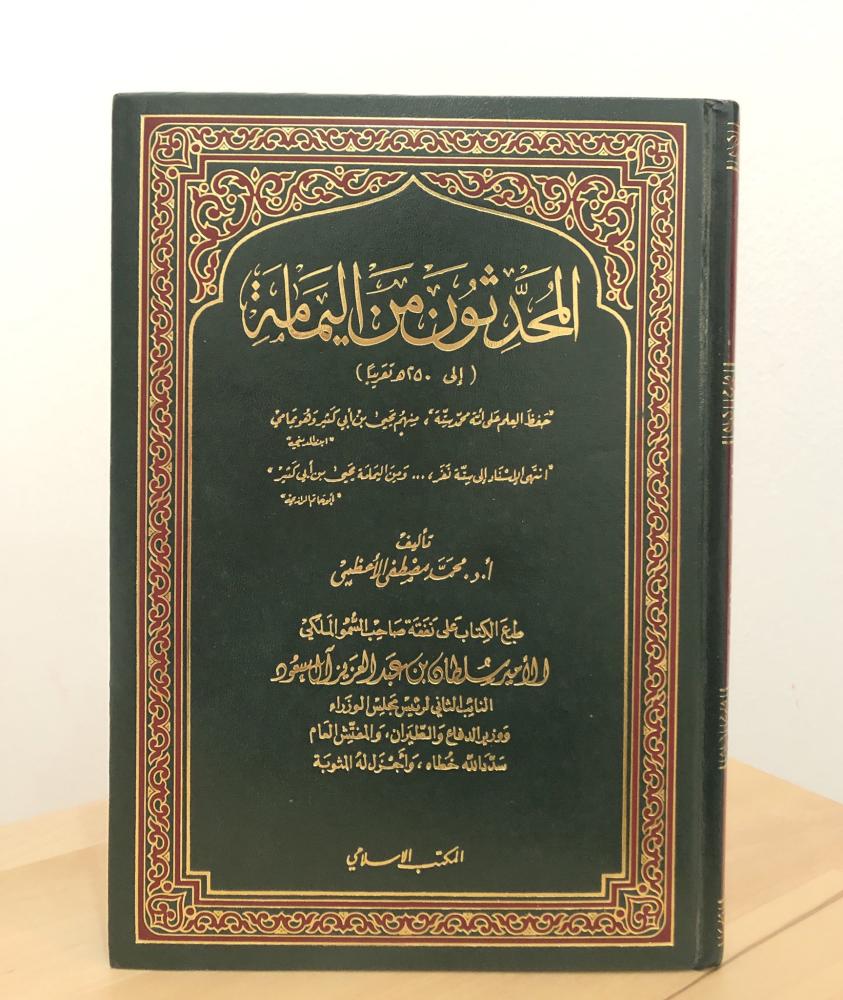 المُحَدِّثُونَ مِنَ اليَمَامَةِ
( إلى ٢٥٠ هـ تقريبًا )
"حَفِظَ العِلمَ عَلى أمّة محمّد ستّة"، مِنهُم يحيى بن أبي كثير وَهو يمامي
"ابن المديني"
"انتهى الإسْنَاد إلى ستّة نَفَر، ... وَمِنَ اليَمامَة يحيى بن أبي كثير"
"أبو حاتم الرازي"
تأليف
أ.د. محمّد مصطفى الأعظمي
طبعَ الكِتابُ على نفَقَة صَاحِب السُّموّ الملَكي
الأمير سلطان بن عبد العزيز آل سعود
النائب الثاني لرئيس مجلس الوزراء
ووزير الدفاع والطّيران، والمفتّش العام
سَدّد الله خُطاه، وَأجزَل لهُ المثوبة
المكتب الإسلامي